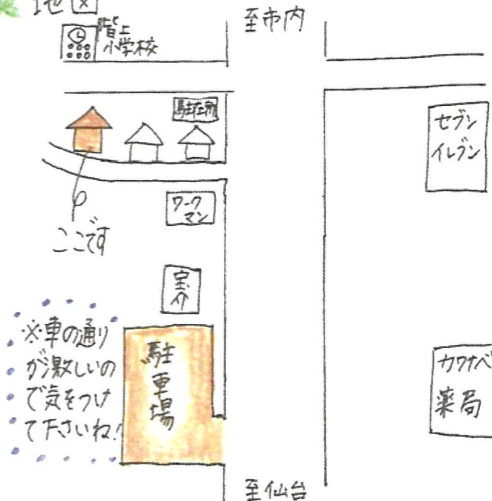 地図
至市内
階上
小学校
駐在所
セブン
イレブン
ワーク
マン
ここです
宝介
※車の通り
が激しいの
で気をつけ
て下さいね!
駐車場
カワナベ
薬局
至仙台